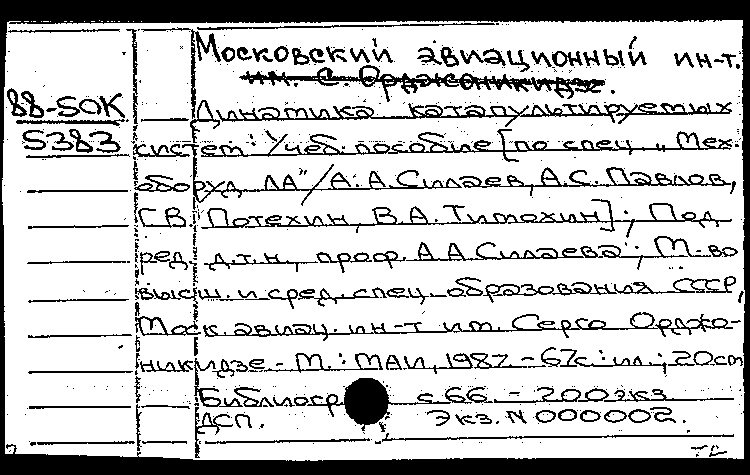 Московский авиационный ин-т.
им. С. Орджоникидзе.
88-50К
5383
Динамика катапультируемых
систем: Учеб. пособие [по спец. „Мех.
оборуд. ЛА"/А.А.Силаев, А.С. Павлов,
Г.В. Потехин, В.А. Тимохин]; Под
ред. д.т.н., проф. А А Силаева; М-во
высш. и сред. спец. образования СССР,
Моск. авиац. ин-т им. Серго Орджо-
никидзе - М.: МАИ, 1987. - 67с.: ил.; 20cm
Библиогр с 66. - 200экз.
ДСП. Экз. N 000002.